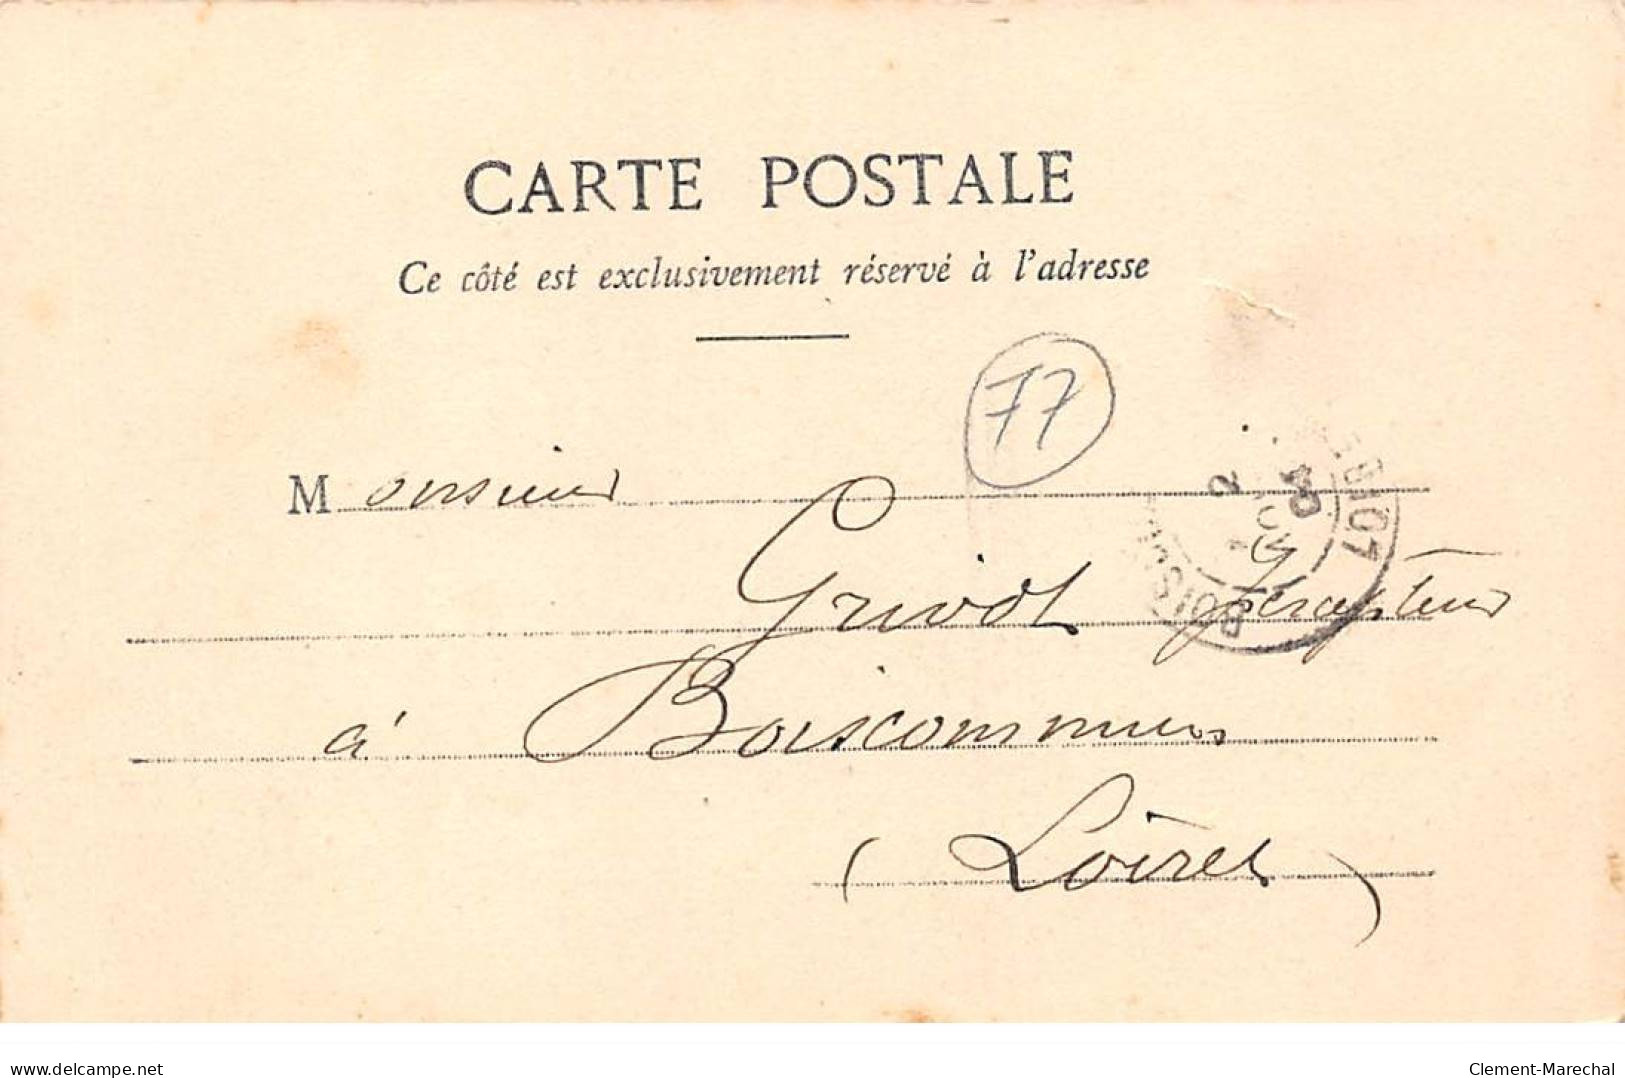 CARTE POSTALE
Ce côté est exclusivement réservé à l'adresse
77
Monsieur
Grivot percepteur
à Boiscommun
(Loiret)
LOIRET
2
04
www.delcampe.net
Clement-Marechal